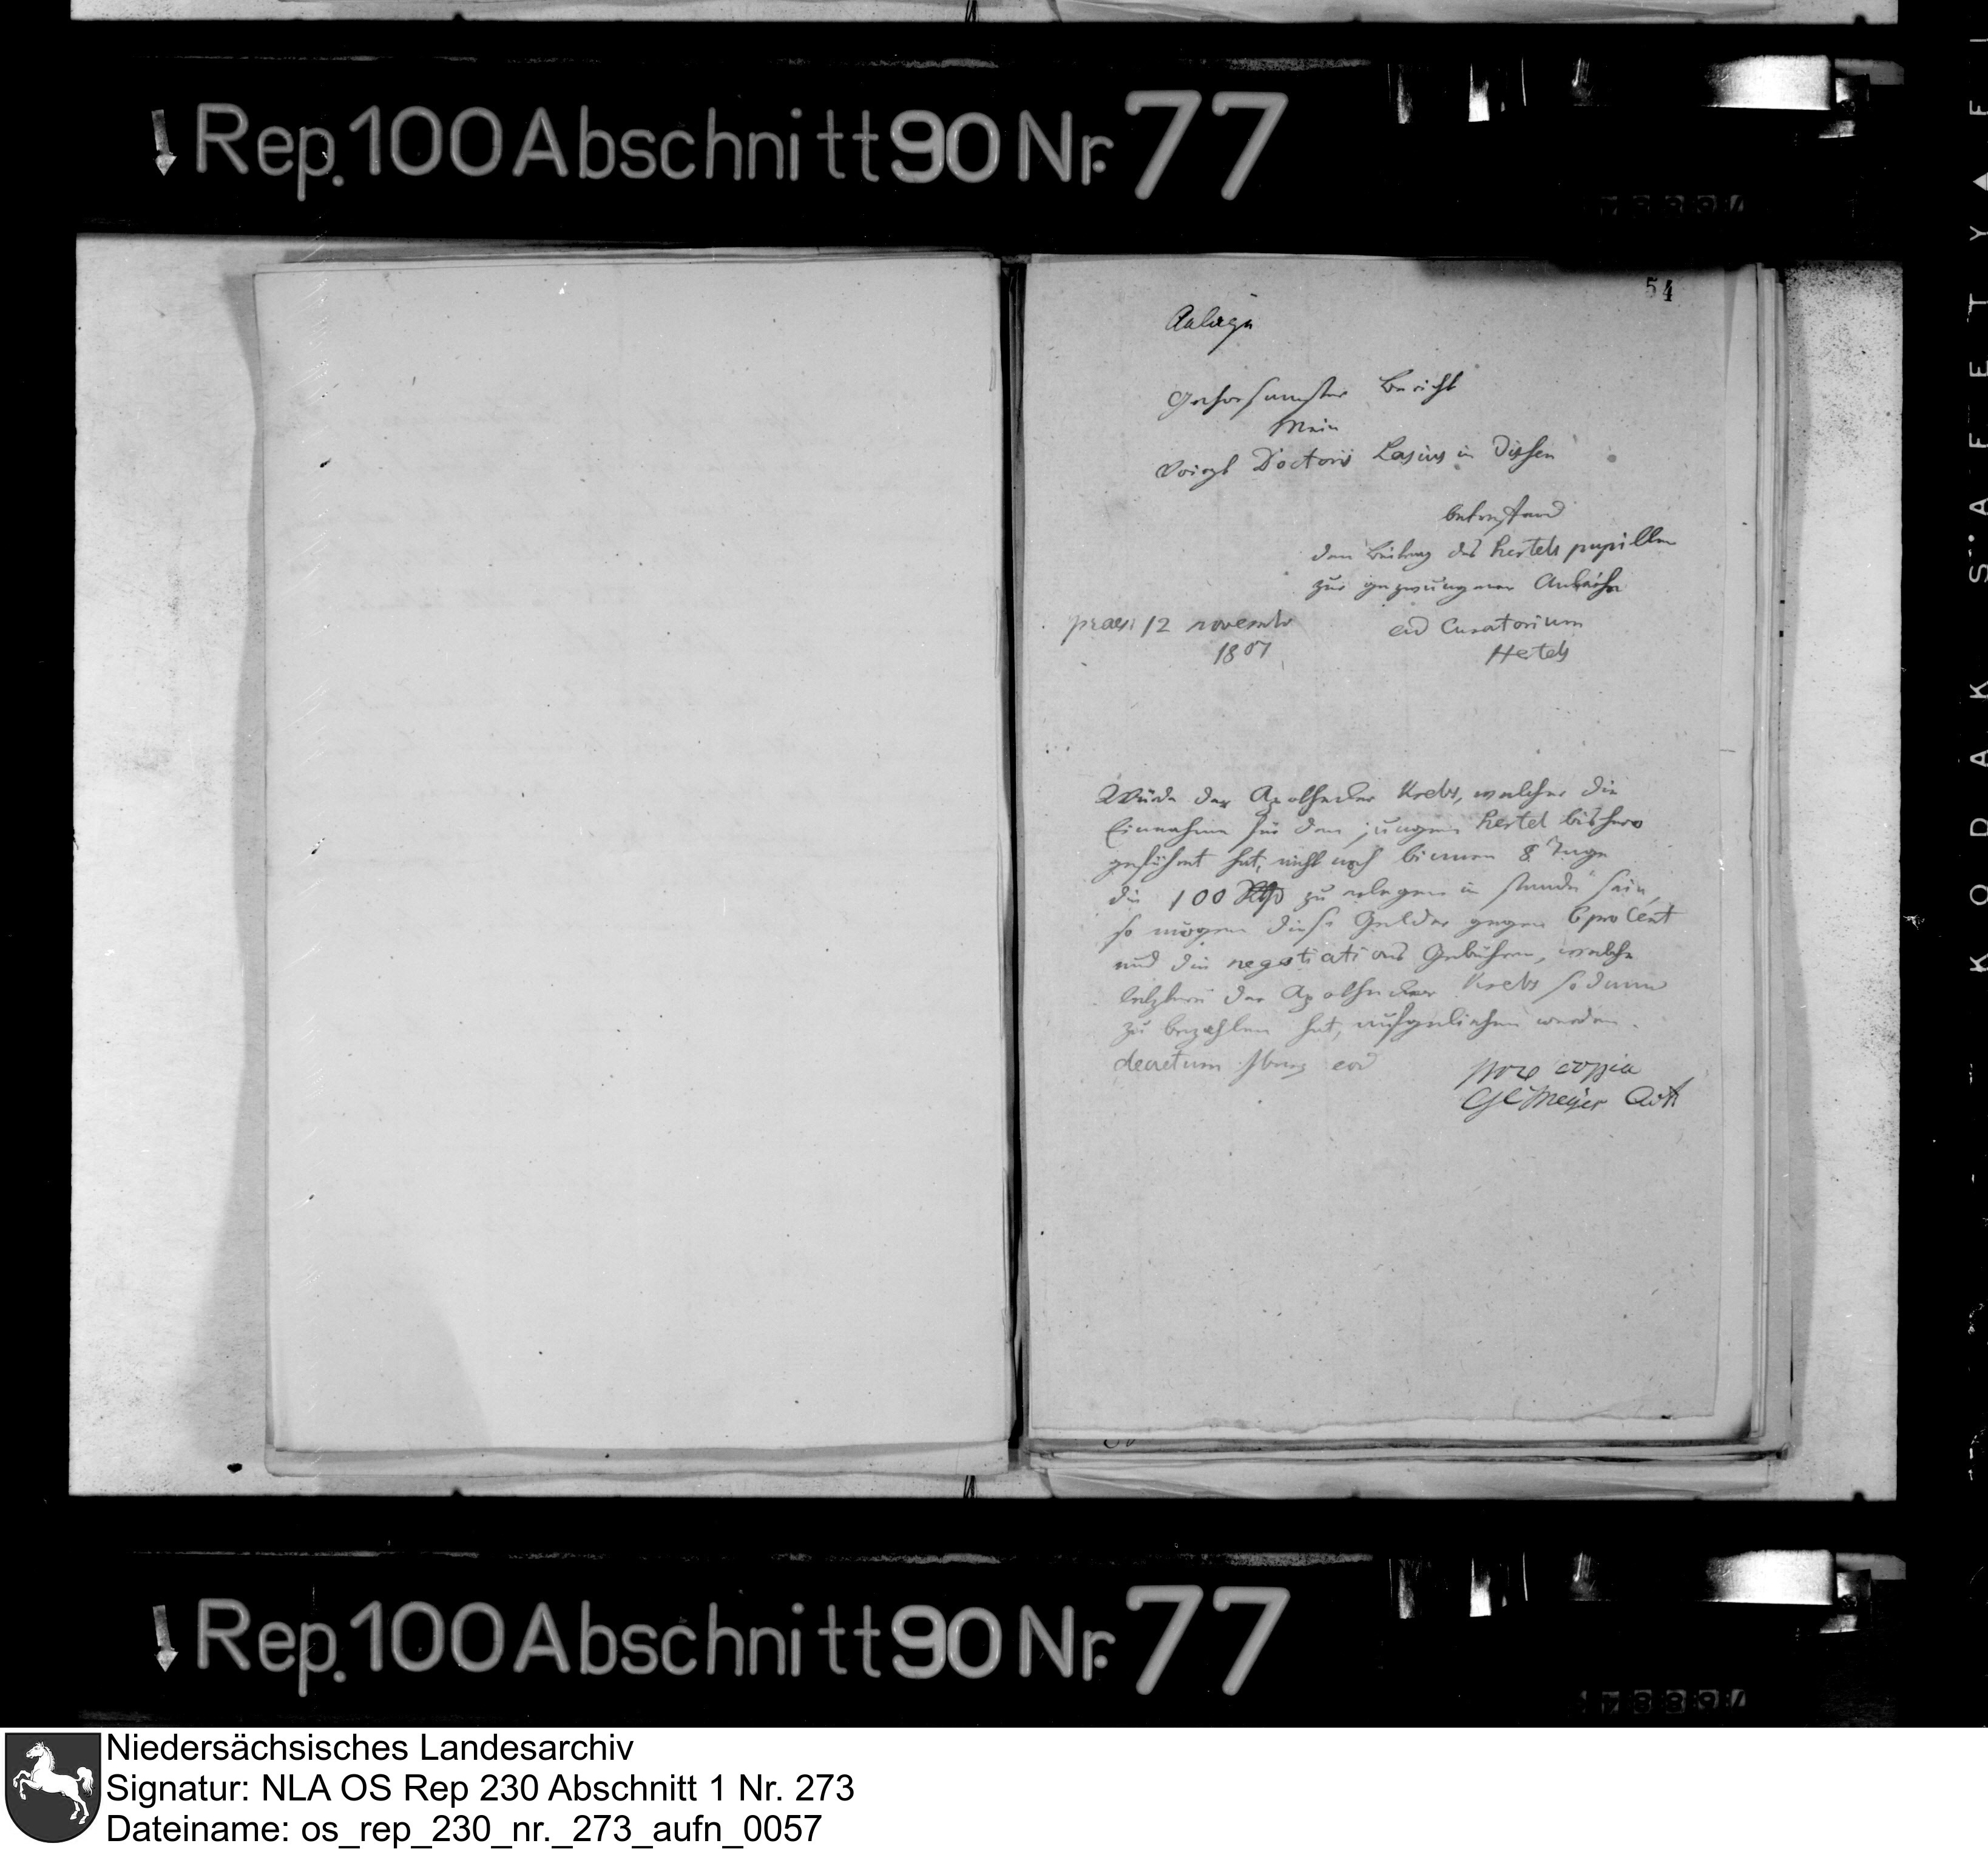 Rep. 100 Abschnitt 90 Nr. 77
54
Anlage
Gehorsamster Bericht
Mein
Voigt Doctoris Lasius in Dissen
betreffend
den Beitrag des Hertels pupillen
zur gezwungenen Anleihe
praes 12 novembr
1807
ad Curatorium
Hertels
Würde der Apothecker Krebs, welcher die
Einnahme für den jungen Hertel bishero
geführt hat, nicht noch binnen 8 Tage
die 100 Rthlr zu erlegen im stande sein,
so mögen diese Gelder gegen 6 pro Cent
und die negotiations Gebühren, welche
letztere der Apothecker Krebs sodann
zu bezahlen hat, aufgeliehen werden.
decretum Iburg eod
pro copia
Meyer
Rep. 100 Abschnitt 90 Nr. 77
Niedersächsisches Landesarchiv
Signatur: NLA OS Rep 230 Abschnitt 1 Nr. 273
Dateiname: os_rep_230_nr._273_aufn_0057
KODAK SAFETY